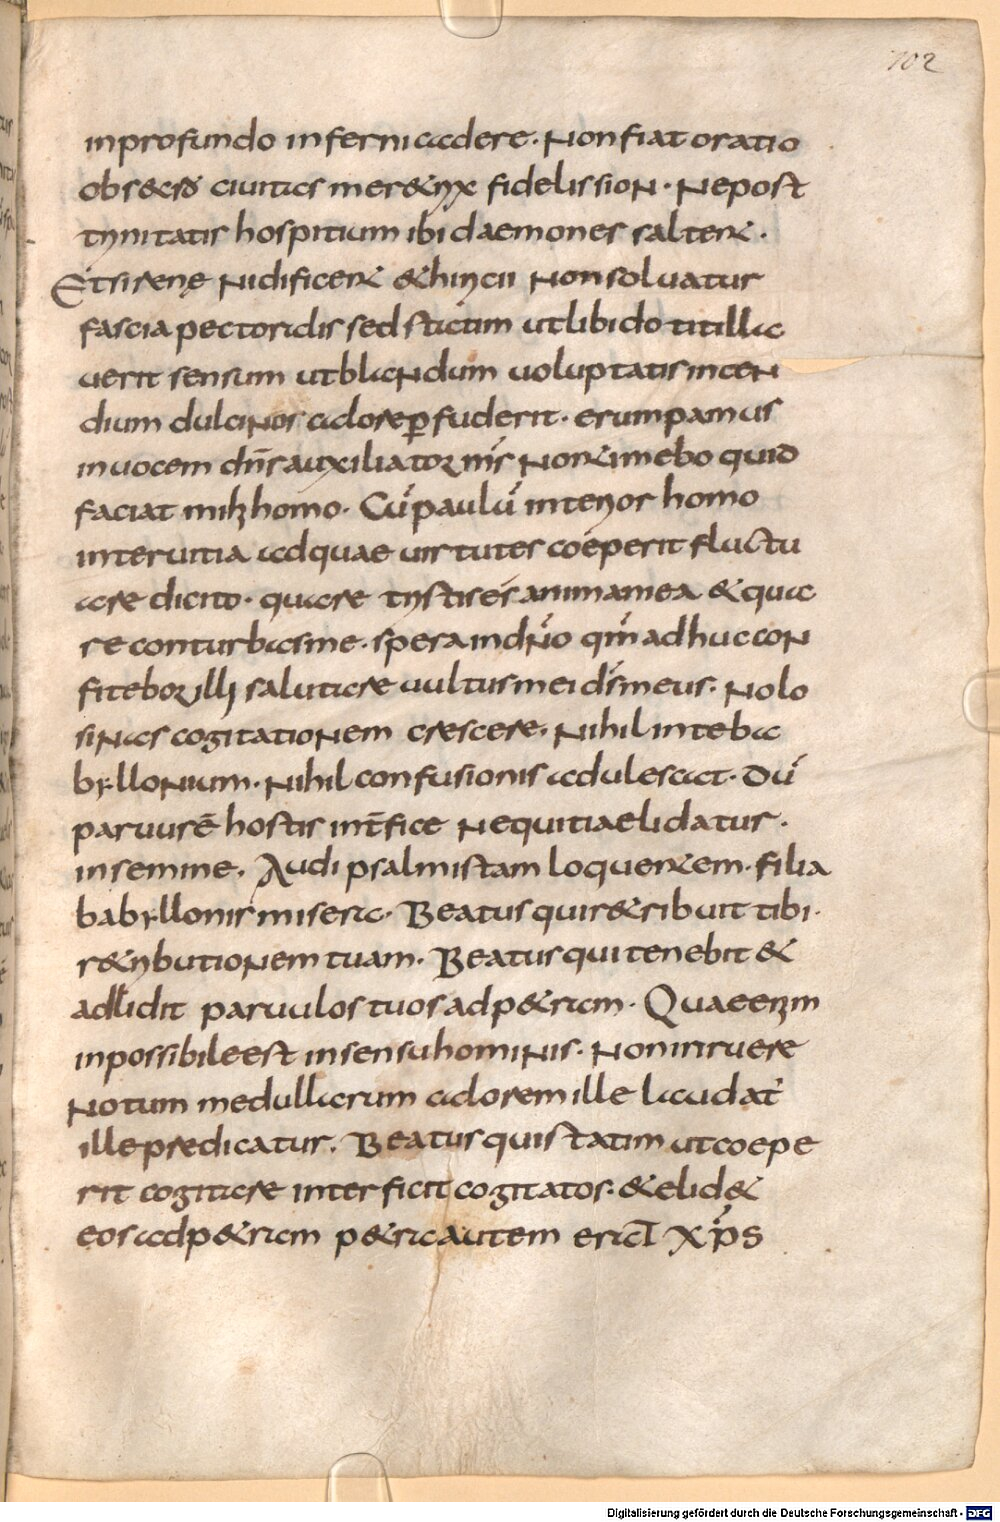 102
in profundo inferni cadere. Non fiat oratio
obs&rō ciuitas mer&rix fidelis sion. Ne post
trinitatis hospitium ibi daemones saltent.
Et sirenę nidificent & hiricii non soluatur
fascia pectoralis sed statim ut libido titilla
uerit sensum ut blandum uoluptatis incen
dium dulci nos calore ꝑfuderit. erumpamus
in uocem dn̄s auxiliator m̄s non timebo quid
faciat mihi homo. Cū paulū interior homo
inter uitia adquae uirtutes coeperit fluctu
are dicito. quare tristis es anima mea & qua
re conturbas me. spera in dn̄o qm̄ adhuc con
fitebor illi salutare uultus mei ds̄ meus. Nolo
sinas cogitationem crescere. Nihil in te ba
byllonium. Nihil confusionis adulescat. Dū
paruus ē hostis int̄fice nequitia elidatur.
in semine. Audi psalmistam loquentem. filia
babyllonis misera. Beatus qui r&ribuit tibi.
r&ributionem tuam. Beatus qui tenebit &
adlidit paruulos tuos ad p&ram. Quae enim
inpossibile est in sensu hominis. Non inruere
notum medullarum calorem ille laudat̄
ille predicatur. Beatus qui statim ut coepe
rit cogitare interficit cogitatos. & elid&
eos ad p&ram p&ra autem erat xp̄s
Digitalisierung gefördert durch die Deutsche Forschungsgemeinschaft - DFG